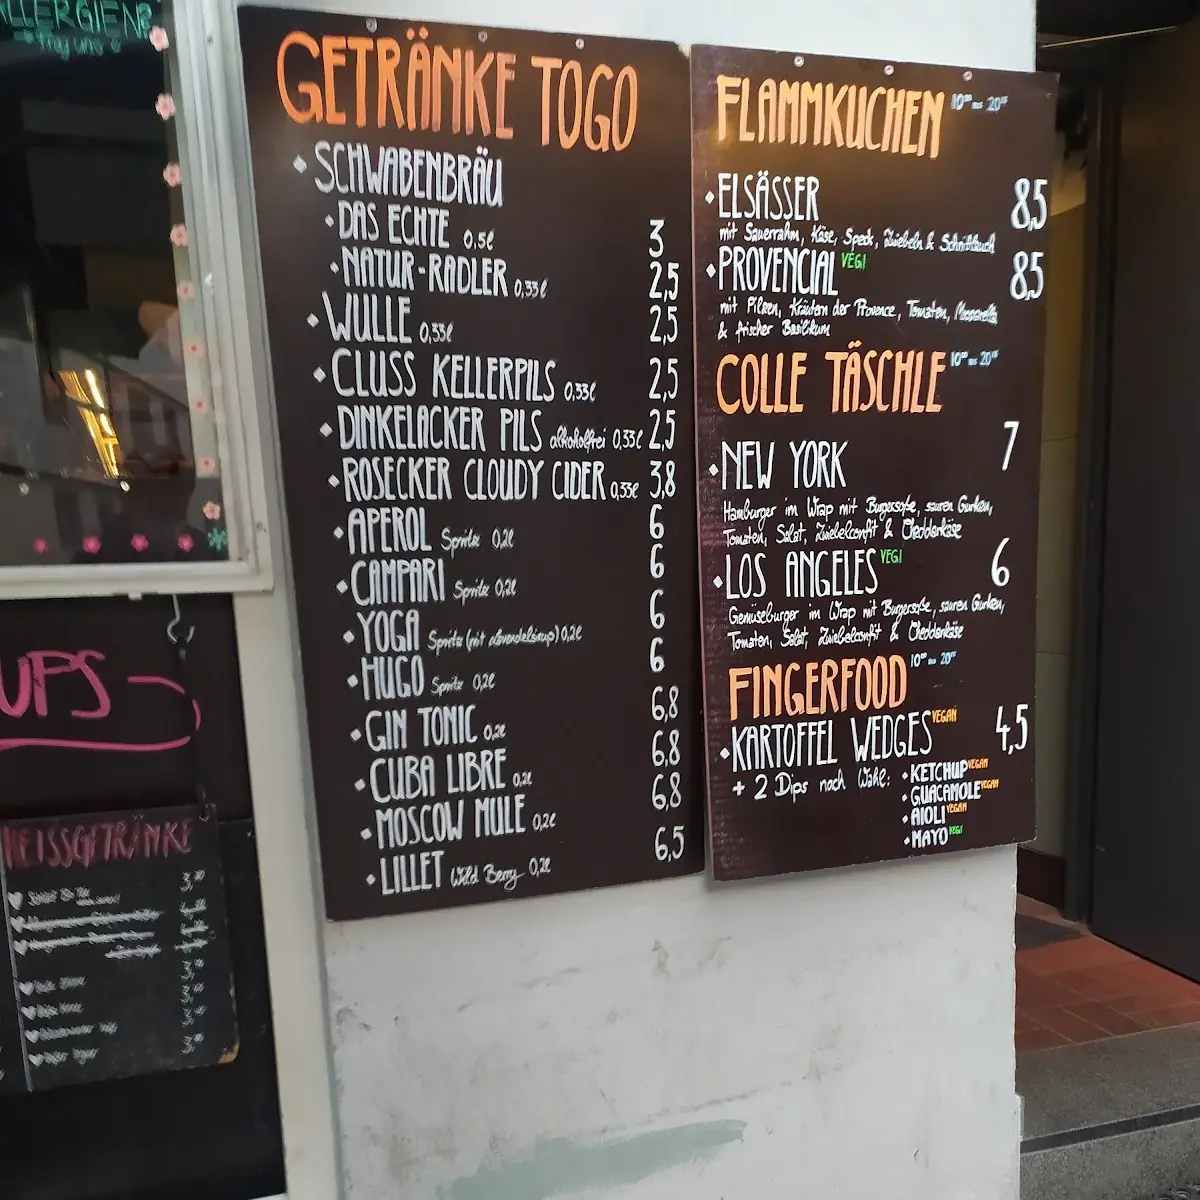 ALLERGIEN?
frag uns
GETRÄNKE TOGO
SCHWABENBRÄU
DAS ECHTE 0,5l 3
NATUR-RADLER 0,33l 2,5
WULLE 0,33l 2,5
CLUSS KELLERPILS 0,33l 2,5
DINKELACKER PILS alkoholfrei 0,33l 2,5
ROSECKER CLOUDY CIDER 0,33l 3,8
APEROL Spritz 0,2l 6
CAMPARI Spritz 0,2l 6
YOGA Spritz (mit Lavendelsirup) 0,2l 6
HUGO Spritz 0,2l 6
GIN TONIC 0,2l 6,8
CUBA LIBRE 0,2l 6,8
MOSCOW MULE 0,2l 6,8
LILLET Wild Berry 0,2l 6,5
FLAMMKUCHEN
ELSÄSSER 8,5
mit Sauerrahm, Käse, Speck, Zwiebeln & Schnittlauch
PROVENCIAL VEGI 8,5
mit Pilzen, Kräutern der Provence, Tomaten, Mozzarella
& frischer Basilikum
COLLE TÄSCHLE
NEW YORK 7
Hamburger im Wrap mit Burgersoße, sauren Gurken,
Tomaten, Salat, Zwiebelconfit & Cheddarkäse
LOS ANGELES VEGI 6
Gemüseburger im Wrap mit Burgersoße, sauren Gurken,
Tomaten, Salat, Zwiebelconfit & Cheddarkäse
FINGERFOOD
KARTOFFEL WEDGES VEGAN 4,5
+ 2 Dips nach Wahl:
KETCHUP VEGAN
GUACAMOLE VEGAN
AIOLI VEGAN
MAYO VEGI
UPS
HEISSGETRÄNKE